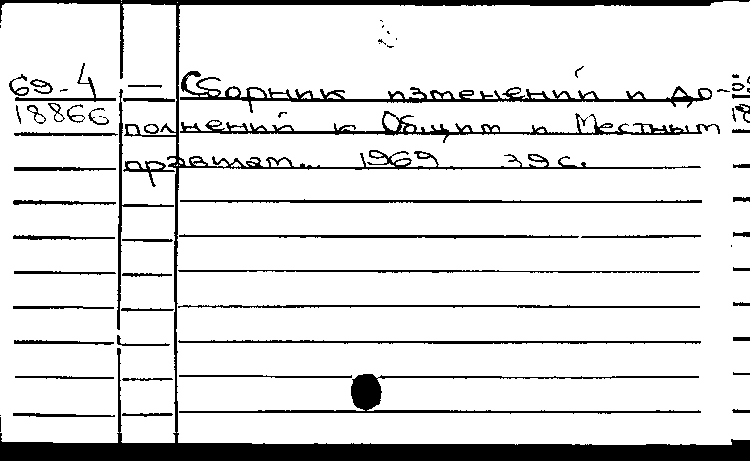 69-4 — Сборник изменений и до-
18866 полнений к Общим и Местным
правилам... 1969. 39 с.